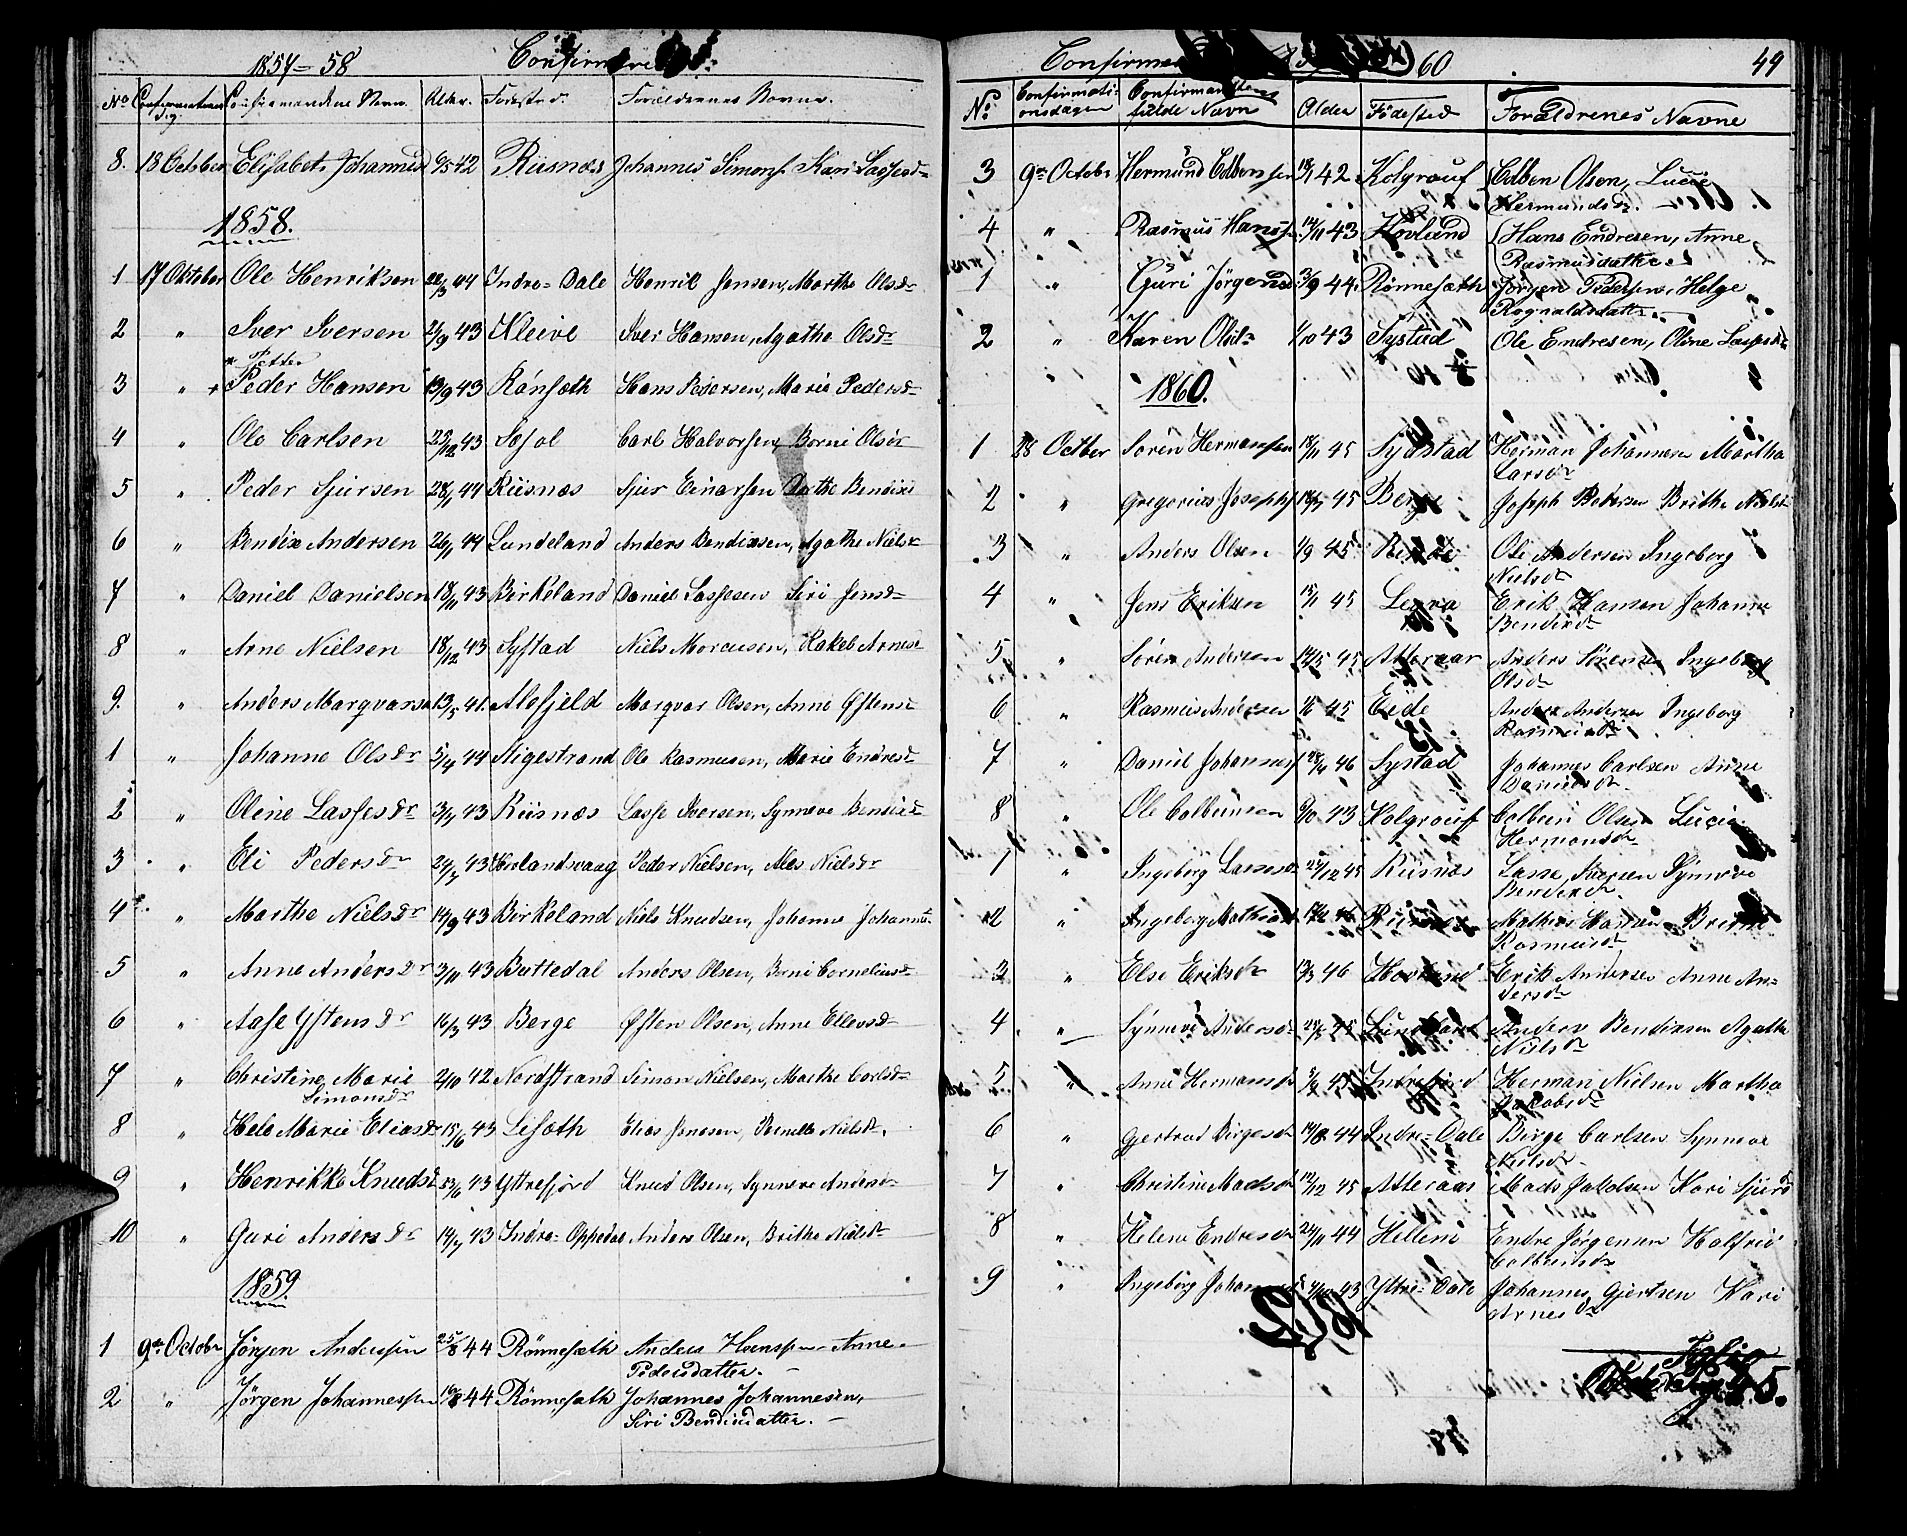 1857-58
No Alder. Fødested. Forældrenes Navne.
8. 18 October Elisabet Johannesd 6/5 42 Risnæs Johannes Simons. Kari Lassesd
1858.
1 17 Oktober Ole Henriksen 44 Indre-Dale Henrik Jensen, Marthe Olsdr
2 " Iver Iversen 2/9 43 Kleive Iver Hansen, Agathe Olsdr
Petter
3 " Peder Hansen 13/9 43 Rønsæth Hans Pedersen, Marie Pedersd
4 " Ole Carlsen 43 Sæsol Carl Halvorsen, Berni Olsdr
5 " Peder Sjursen 44 Risnæs Sjur Einarsen Dorthe Bendixd
6 " Bendix Andersen 44 Lundeland Anders Bendixsen, Agathe Nielsd
7 " Daniel Danielsen 18/11 43 Birkeland Daniel Lassesen Siri Jensdr
8 " Arne Nielsen 18/12 43 Systad Niels Morcusen, Rakel Arnesd
9. " Anders Marqvarsn 13/5 41. Alefjeld Marqvar Olsen, Anne Østensd
1 " Johanne Olsdr 5/4 44 Stigestrand Ole Rasmusen, Marie Endresd
2 " Oline Lassesdr 3/7 43 Risnæs Lasse Iversen, Synneve Bendixd
3 " Eli Pedersdr 24/7 43 Hovlandsvaag Peder Nielsen, Ales Nielsdr
4 " Marthe Nielsdr 14/9 43 Birkeland Niels Knudsen, Johanne Johannesd
5 " Anne Andersdr 3/11 43 Buttedal Anders Olsen, Berni Corneliusd
6 " Aase Ystensdr 16/3 43 Berge Østen Olsen, Anne Ellevsd
7 " Christine Marie 2/10 42 Nordstrand Simon Nielsen, Marthe Carlsd
Simonsdr
8 " Hele Marie Eliasdr 15/6 43 Lesæth Elias Jonasen, Pernille Nielsdr.
9 " Henrikke Knudsd 43 Yttrefjord Knud Olsen, Synneve Andersd
10 " Guri Andersdr 14/7 43 Indre-Oppedal Anders Olsen, Brithe Nielsd
1859.
1 9de October Jørgen Andersen 25/8 44 Rønnesæth Anders Hansen Anne
Pedersdatter.
2 " Jørgen Johannessen 16/8 44 Rønnesæth Johannes Johannesen,
Siri Bendixdatter.
60 49
No. Confirmationsdagen Confirmandens fulde Navn Alder Fødested Forældrenes Navne
3 9de Octobr Hermund Colbensen 42 Kolgrouf Colben Olsen, Lucie
Hermundsdr.
4 " Rasmus Hansen 14/11 43 Hovland Hans Endresen, Anne
Rasmusdatter
1 " Guri Jørgensd 3/9 44 Rønnesæth Jørgen Pedersen, Helge
Rognaldsdatter
2 " Karen Olsdr 1/10 43 Systad Ole Endresen, Oline Lassesdr
1860.
1 28 Octber Søren Hermansen 18/11 45 Sydstad Herman Johannesen Martha
Larsdr
2 " Gregorius Josephs 45 Berge Joseph Pedersen Brithe Nielsd
3 " Anders Olsen 1/9 45 Ole Andersen Ingeborg
Nielsdr
4 " Jens Eriksen 45 Leera Erik Hansen Johanne
Bendixdr
5 " Søren Andersen 14/5 45 Atteraas Anders Sørensen Ingeborg
Olsdr
6 " Rasmus Andersen 45 Eide Anders Andersen Ingeborg
Rasmusdr
7 " Daniel Johanness 46 Systad Johannes Carlsen Anne
Danielsdr.
8 " Ole Colbeinsen 43 Kolgrouf Colbein Olsen Lucie
Hermansdr
1 " Ingeborg Lassesd 45 Riisnæs Lasse Iversen Synneve
Bendixdr
2 " Ingeborg Mathiasd Riisnæs Mathias Hansen Brithe
Rasmusdr
3 " Else Eriksdr 46 Hovland Erik Andersen Anne An-
dersdr
4 " Synneve Andersdr 45 Lundeland Anders Bendixen Agathe
Nielsdr
5 " Anne Hermansdr 45 Indrefjord Herman Nielsen Martha
Jakobsdr
6 " Gjertrud Birgesdr 14/8 44 Indre-Dale Birge Carlsen Synneve
Nielsdr
7 " Christine Madsd 12/12 45 Atteraas Mads Jakobsen Kari Sjursd
8 " Helene Endresdr 24/11 44 Helleni Endre Jørgensen Halfrid
Colbeinsdr
9 " Ingeborg Johannesd 43 Yttre-Dale Johannes Gjertsen Kari
Arnesdr